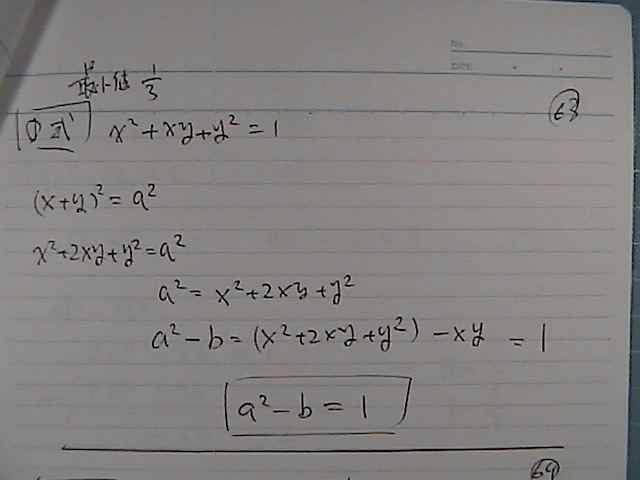 No.
DATE
最小値 1/3
63
①式 x²+xy+y²=1
(x+y)²=a²
x²+2xy+y²=a²
a²=x²+2xy+y²
a²-b=(x²+2xy+y²)-xy=1
a²-b=1
64